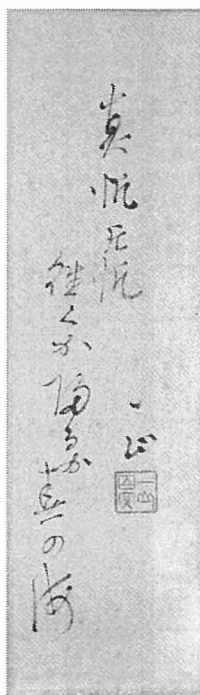 真帆片帆
往くか帰るか春の海